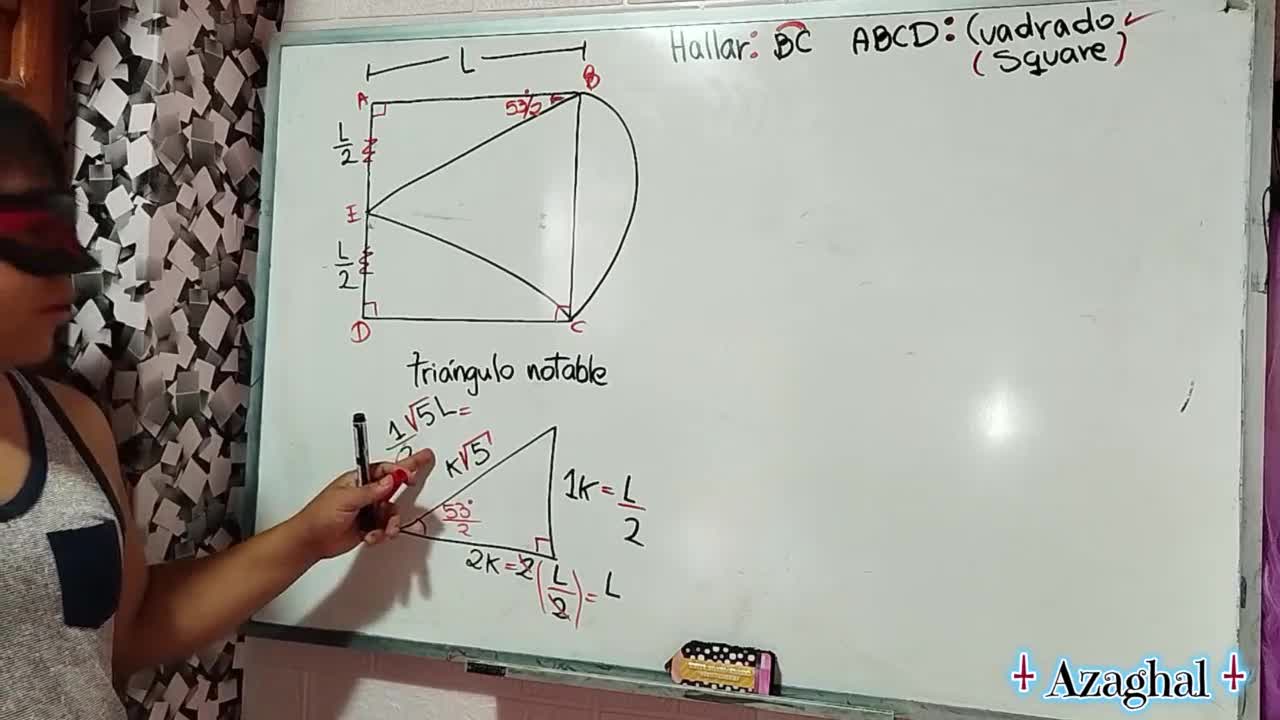 Hallar: BC ABCD: Cuadrado
(Square)
L
A
B
53°/2
L/2
E
L/2
D
C
triángulo notable
√5L=
K√5
53°/2
1K = L/2
2K = 2(L/2) = L
Azaghal